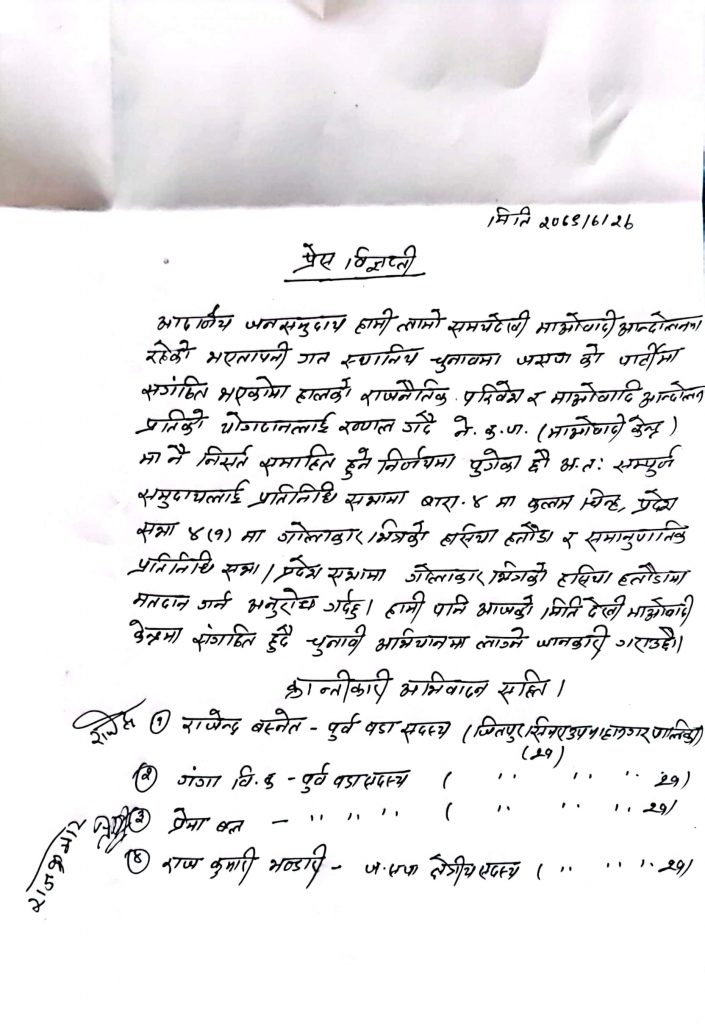 मिति २०७९/६/२६
प्रेस विज्ञप्ती
आदरणिय जनसमुदाय हामी लामो समयदेखी माओवादी आन्दोलनमा
रहेको भएतापनी गत स्थानिय चुनावमा जसपा को पार्टीमा
संगठित भएकोमा हालको राजनैतिक परिवेश र माओवादि आन्दोलन
प्रतिको योगदानलाई ख्याल गर्दै ने.क.पा. (माओवादी केन्द्र)
मा नै निसर्त समाहित हुने निर्णयमा पुगेका छौ अ.त: सम्पुर्ण
समुदायलाई प्रतिनिधि सभामा बारा-४ मा कलम चिन्ह, प्रदेश
सभा ४(१) मा गोलाकार भित्रको हसिया हतौडा र समानुपातिक
प्रतिनिधि सभा/प्रदेश सभामा गोलाकार भित्रको हसिया हतौडामा
मतदान गर्न अनुरोध गर्दछु। हामी पनि आजको मिति देखी माओवादी
केन्द्रमा संगठित हुदै चुनावी अभियानमा लाग्ने जानकारी गराउछौ।
क्रान्तीकारी अभिवादन सहित।
① राजेन्द्र बस्नेत - पुर्व वडा सदस्य (जितपुर सिमरा उपमहानगरपालिका)
(२१)
② गंगा वि.क - पुर्व वडा सदस्य ( " " " " २१)
③ प्रेमा बल - " " " " ( " " " २१)
④ राज कुमारी भण्डारी - ज.सपा क्षेत्रीय सदस्य ( " " " २१)
राजकुमारी